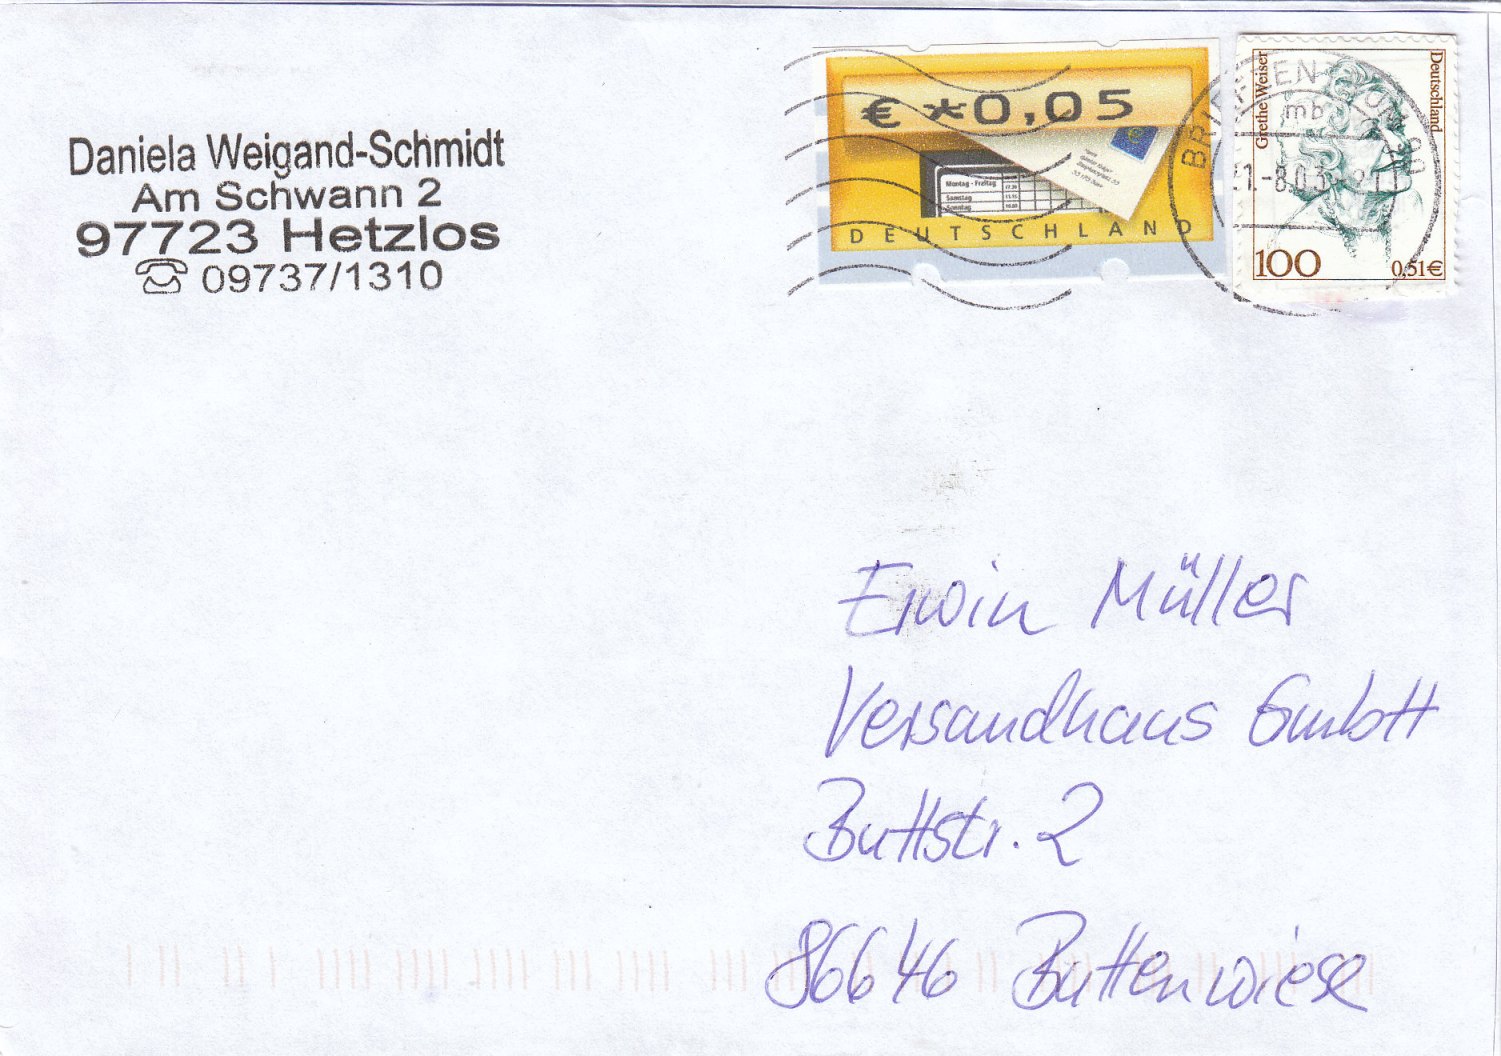 Daniela Weigand-Schmidt
Am Schwann 2
97723 Hetzlos
☏ 09737/1310
€ *0,05
Montag - Freitag
Samstag
Sonntag
DEUTSCHLAND
Grethe Weiser
Deutschland
100
0,51€
mb
-8.03
Erwin Müller
Versandhaus GmbH
Buttstr. 2
86646 Buttenwiese